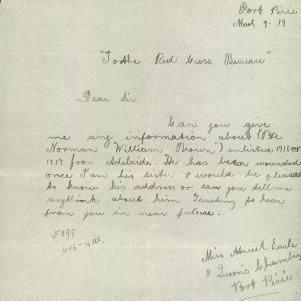 Port Pirie
March 9-19
"To the Red Cross Bureau"
Dear Sir
Can you give
me any information about (Pte
Norman William Brown) enlisted 1916 or
1917 from Adelaide. He has been wounded
once I am his sister & would be pleased
to know his address or can you tell me
anything about him Trusting to hear
from you in near future.
5098
Miss Muriel Earle
8 Queen's Chambers
Port Pirie